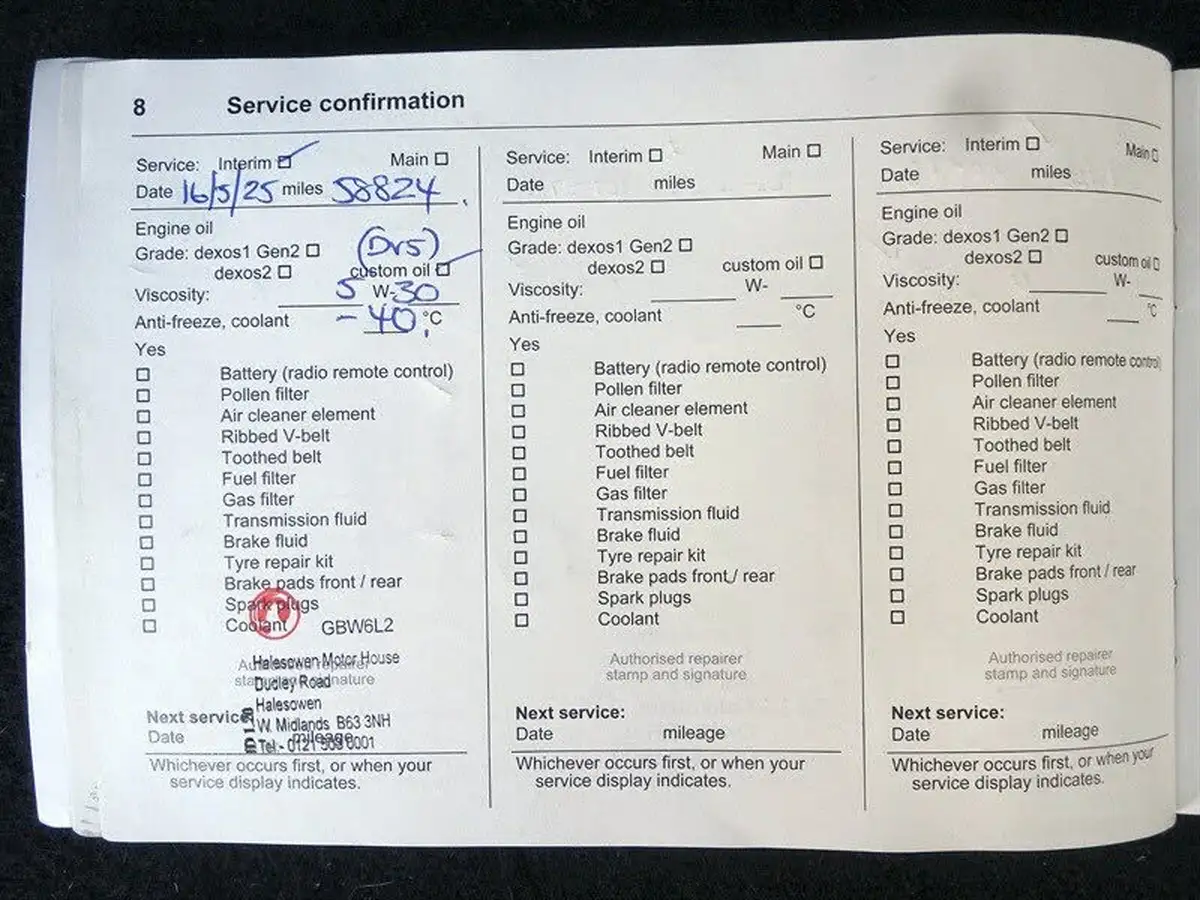 8 Service confirmation
Service: Interim Main
Date 16/5/25 miles 58824.
Engine oil
Grade: dexos1 Gen2 (Dv5)
dexos2 custom oil
Viscosity: 5 W-30
Anti-freeze, coolant -40 °C
Yes
Battery (radio remote control)
Pollen filter
Air cleaner element
Ribbed V-belt
Toothed belt
Fuel filter
Gas filter
Transmission fluid
Brake fluid
Tyre repair kit
Brake pads front / rear
Spark plugs
Coolant GBW6L2
Authorised repairer
stamp and signature
Halesowen Motor House
Dudley Road
Halesowen
W. Midlands B63 3NH
Tel:- 0121 0001
Next service:
Date mileage
Whichever occurs first, or when your
service display indicates.
Service: Interim Main
Date miles
Engine oil
Grade: dexos1 Gen2
dexos2 custom oil
Viscosity: W-
Anti-freeze, coolant °C
Yes
Battery (radio remote control)
Pollen filter
Air cleaner element
Ribbed V-belt
Toothed belt
Fuel filter
Gas filter
Transmission fluid
Brake fluid
Tyre repair kit
Brake pads front / rear
Spark plugs
Coolant
Authorised repairer
stamp and signature
Next service:
Date mileage
Whichever occurs first, or when your
service display indicates.
Service: Interim Main
Date miles
Engine oil
Grade: dexos1 Gen2
dexos2 custom oil
Viscosity: W-
Anti-freeze, coolant °C
Yes
Battery (radio remote control)
Pollen filter
Air cleaner element
Ribbed V-belt
Toothed belt
Fuel filter
Gas filter
Transmission fluid
Brake fluid
Tyre repair kit
Brake pads front / rear
Spark plugs
Coolant
Authorised repairer
stamp and signature
Next service:
Date mileage
Whichever occurs first, or when your
service display indicates.